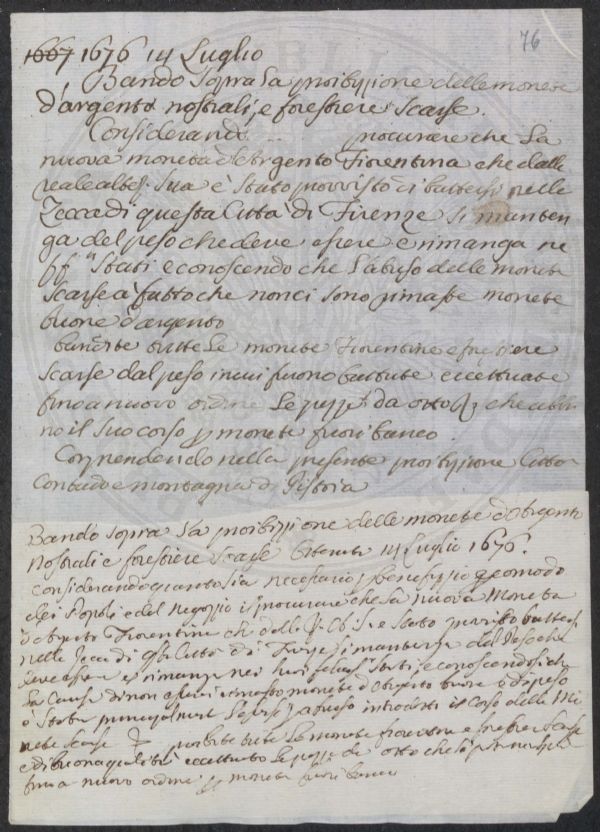 76
1667 1676 14 Luglio
Bando sopra la proibizione delle monete
d'argento nostrali, e forestiere Scarse.
Considerando ... procurare che la
nuova moneta d'Argento Fiorentina che dalla
reale altez. Sua è stato provvisto si battessi nella
Zecca di questa Città di Firenze si manten
ga del peso che deve essere e rimanga ne
Stati e conoscendo che l'abuso delle monete
Scarse à fatto che non ci sono rimaste monete
buone d'argento
bandite tutte le monete Fiorentine e forestiere
Scarse dal peso in cui furono battute eccettuate
fino a nuovo ordine le pezze da otto che abbi
no il suo corso p monete fuori banco.
Comprendendo nella presente proibizione Città
Contado e montagna di Pistoia
Bando sopra la proibizione delle monete d'Argento
Nostrali e forestiere Scarse 14 Luglio 1676.
Considerando quanto sia necessario p benefizzio e comodo
dei Popoli e del Negozzio il procurare che la nuova Moneta
d'Argento Fiorentina che dalla è stato provvisto battersi
nella Zecca di Città di Firenze si mantenga del Peso che
deve essere e si rimanga nei Stati e conoscendosi che
la Causa di non essere rimasto monete d'Argento buone di peso
è stata principalmente abuso introdotto il Corso delle Mo
nete Scarse proibite tutte le monete fiorentine e forestiere Scarse
e di buona qualità eccettuato le pezze da otto che si
fino a nuovo ordine p monete fuori banco